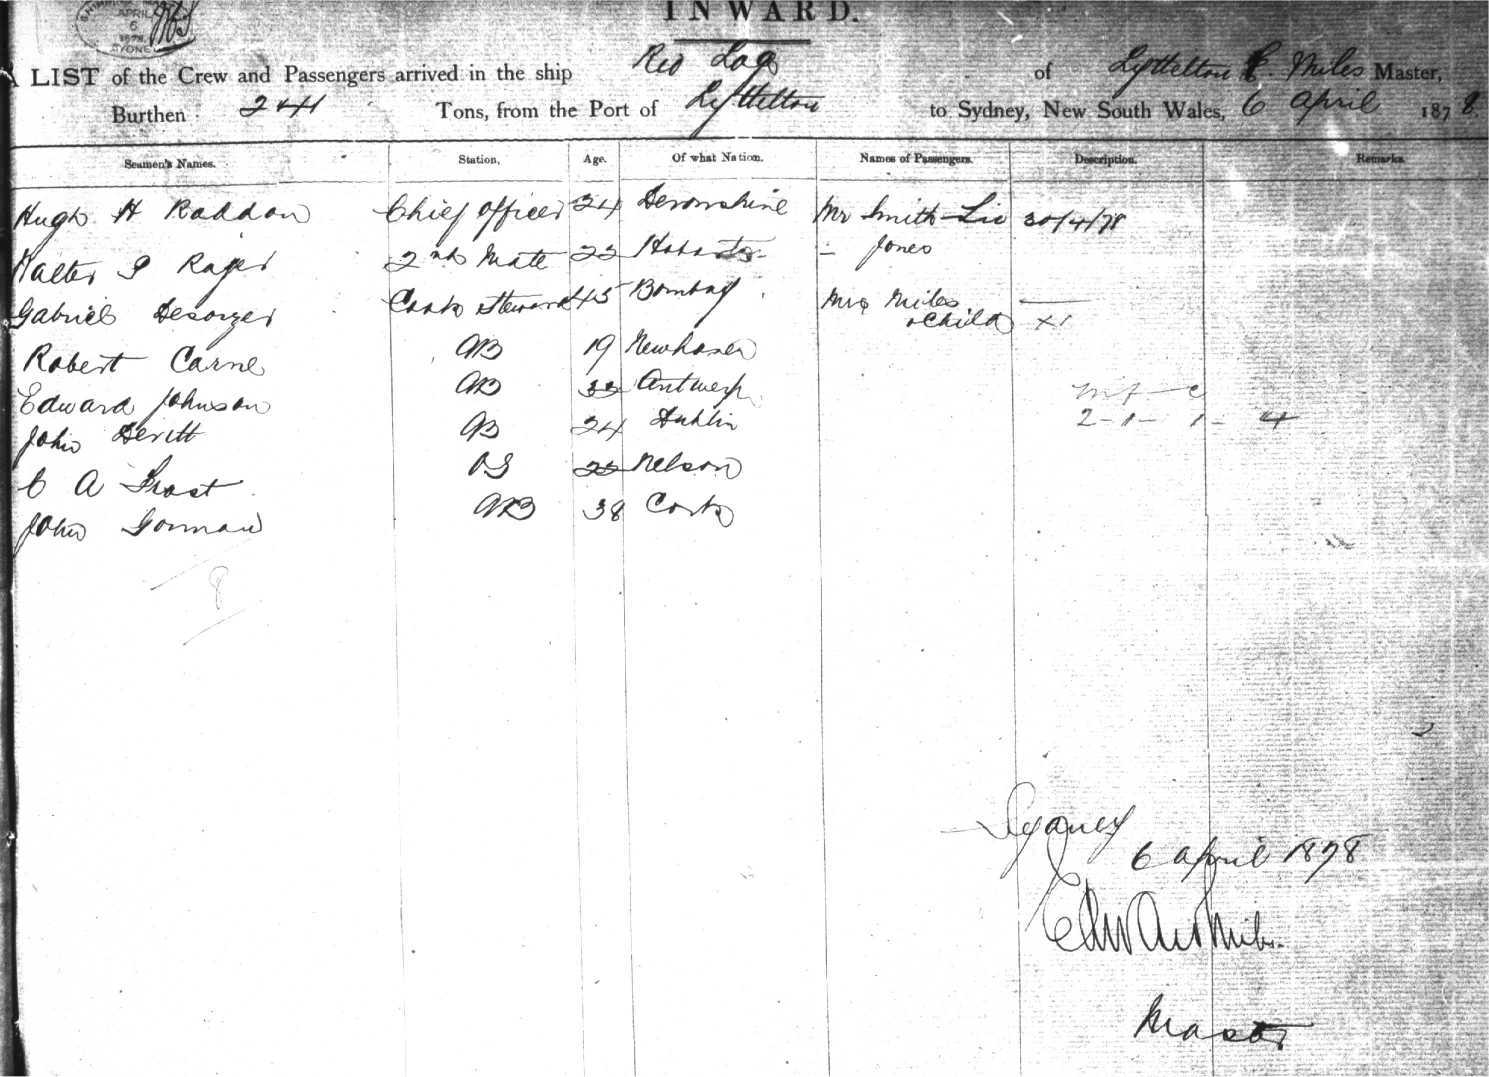 INWARD.
APRIL
6
SYDNEY
A LIST of the Crew and Passengers arrived in the ship Rio Loge of Lyttelton E. Miles Master,
Burthen 241 Tons, from the Port of Lyttelton to Sydney, New South Wales, 6 April 1878.
Seamen's Names. Station, Age. Of what Nation. Names of Passengers. Description. Remarks.
Hugh H Raddon Chief Officer 24 Devonshire Mr Smith Lic 30/4/78
Walter P 2nd Mate 22 - Jones
Gabriel Cook Steward 45 Bombay Mrs Miles
& Child
Robert Carne AB 19 Newhaven
Edward Johnson AB 33 Antwerp
John Devitt AB 24 Dublin 2-1-1-4
C A Frost OS 22 Nelson
John Gorman AB 38 Cork
8
Sydney
6 April 1878
Edward Miles
Master